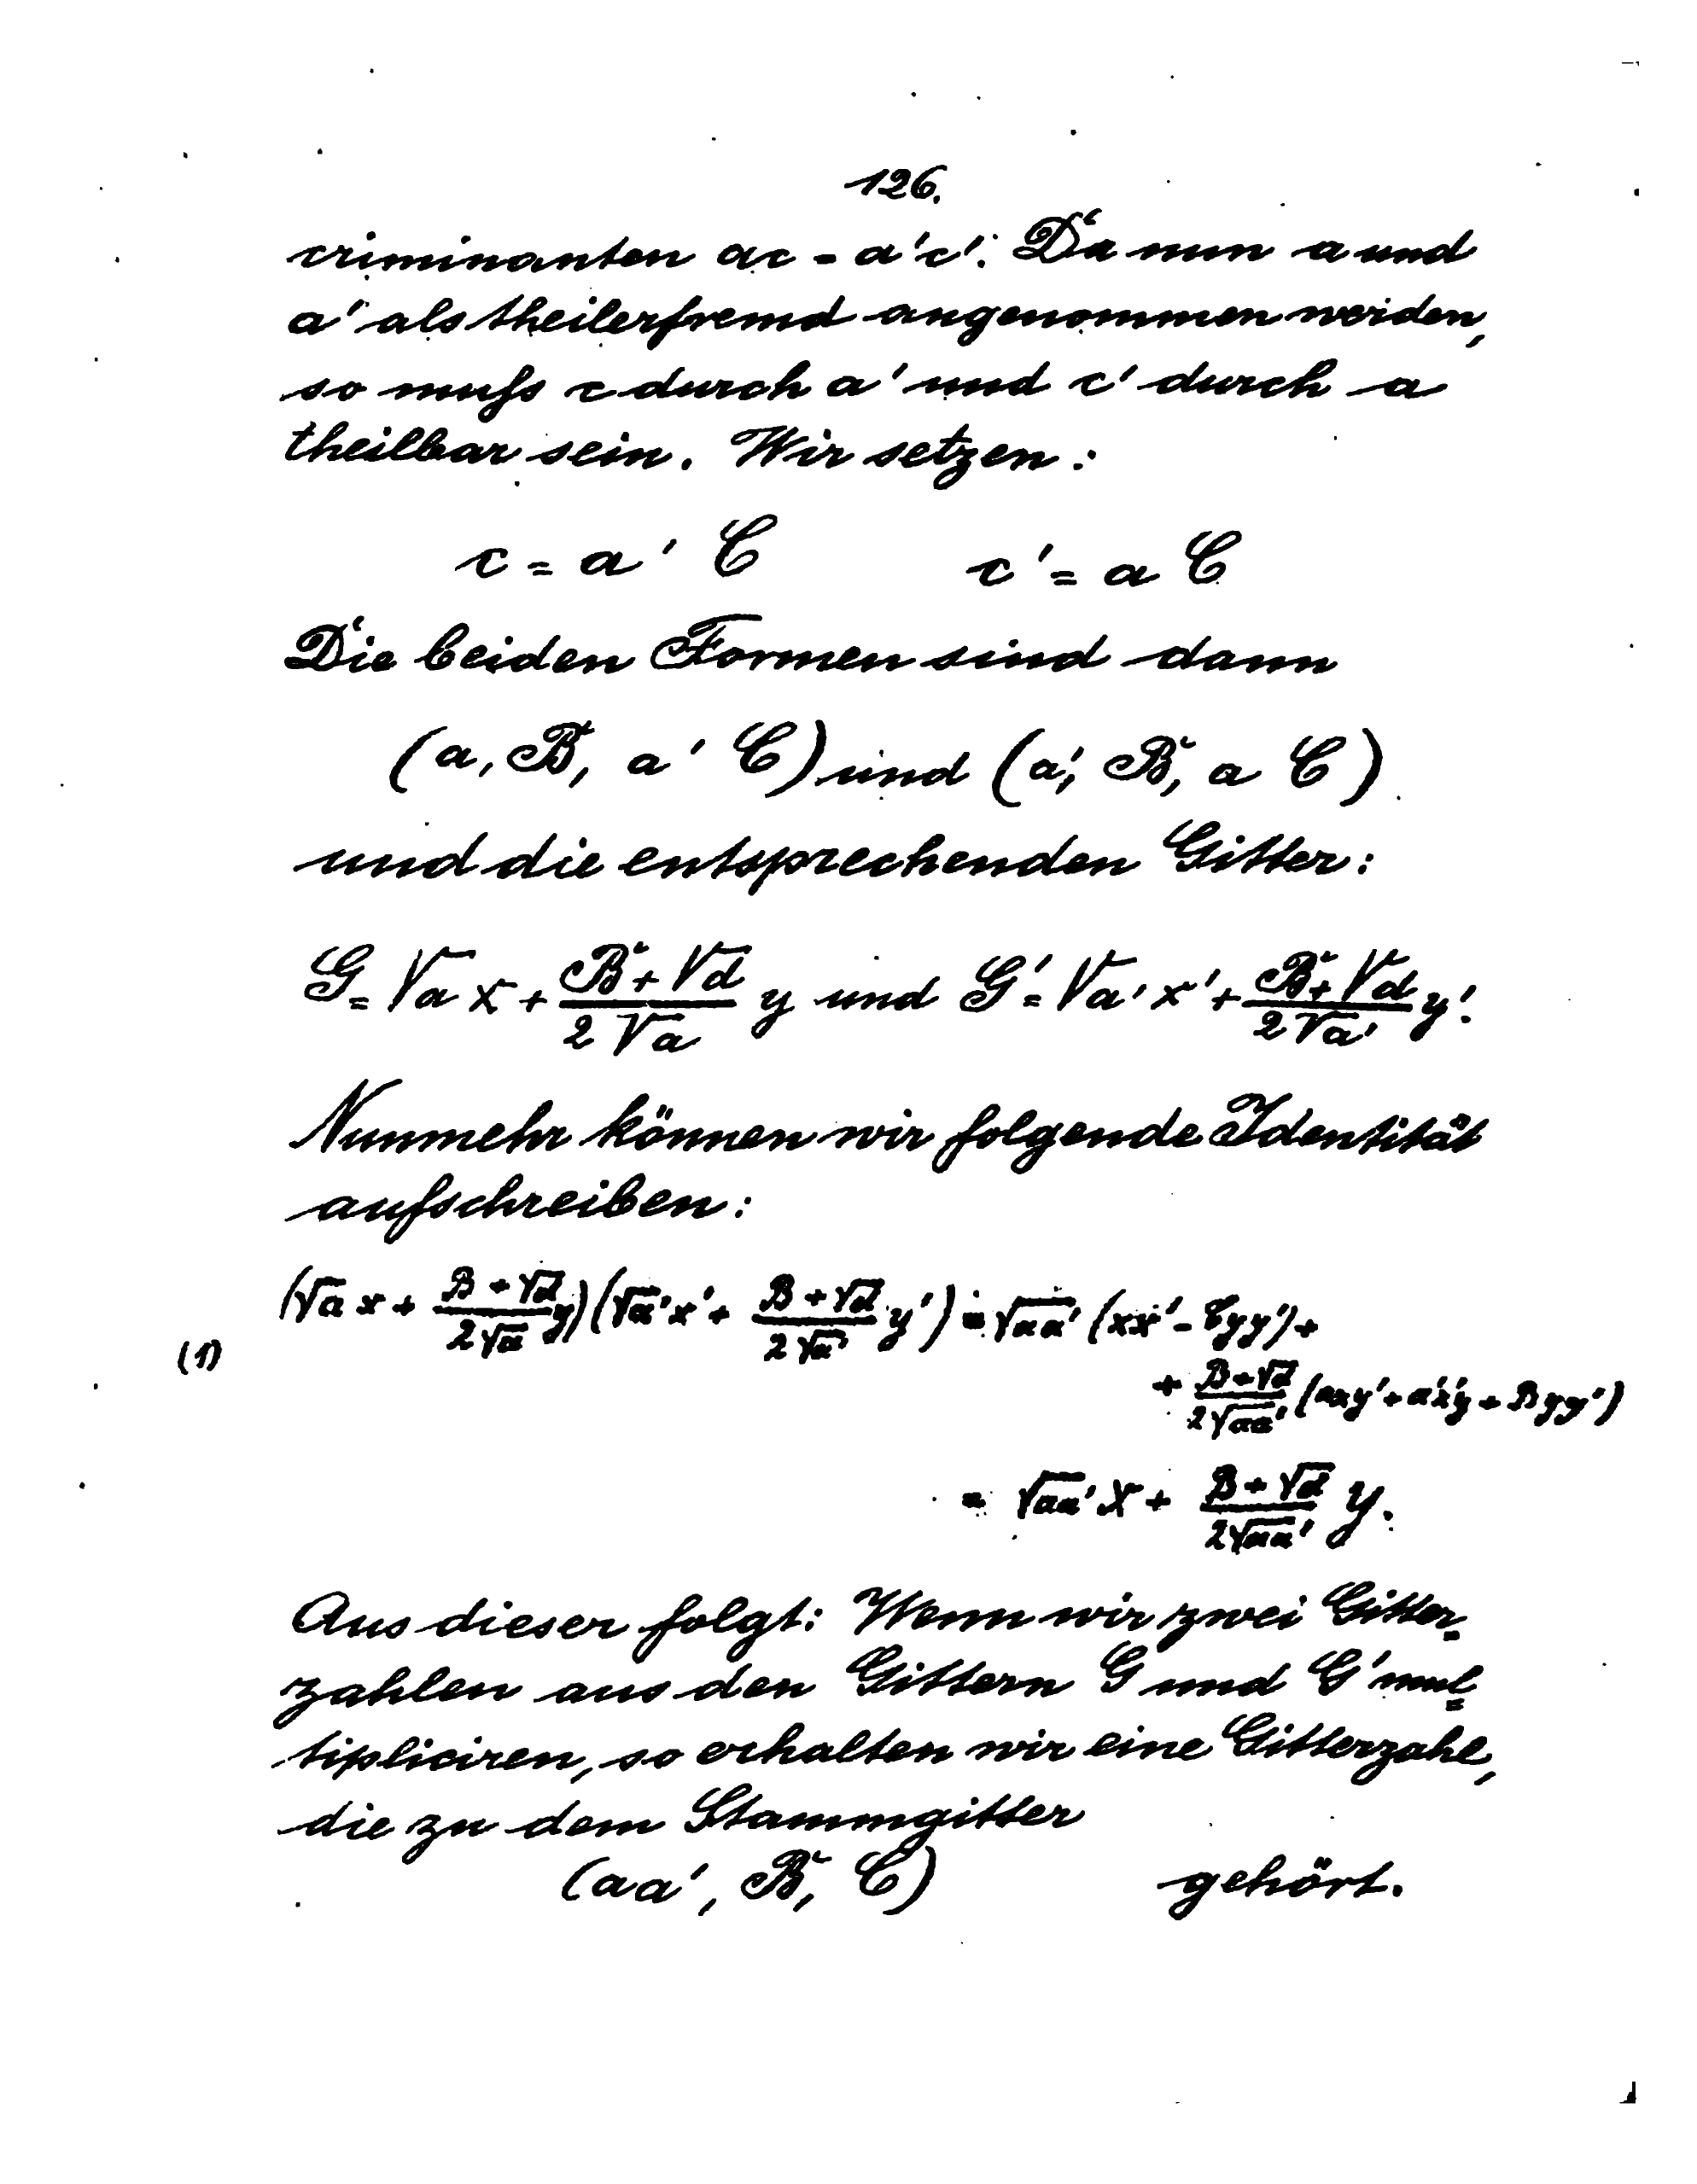 126.
criminanten ac = a'c'. Da nun a und
a' als theilerfremd angenommen werden,
so muſs c durch a' und c' durch a
theilbar sein. Wir setzen:
c = a' C c' = a C
Die beiden Formen sind dann
(a, B, a' C) und (a', B, a C)
und die entsprechenden Gitter:
G = √a x + (B + √d)/(2√a) y und G' = √a' x' + (B + √d)/(2√a') y'.
Nunmehr können wir folgende Identität
aufschreiben:
(√a x + (B + √d)/(2√a) y)(√a' x' + (B + √d)/(2√a') y') = √aa' (xx' - Cyy') +
(1)
+ (B + √d)/(2√aa') (axy' + a'x'y + Byy')
= √aa' X + (B + √d)/(2√aa') Y.
Aus dieser folgt: Wenn wir zwei Gitter=
zahlen aus den Gittern G und G' mul=
tipliciren, so erhalten wir eine Gitterzahl,
die zu dem Stammgitter
(aa', B, C) gehört.